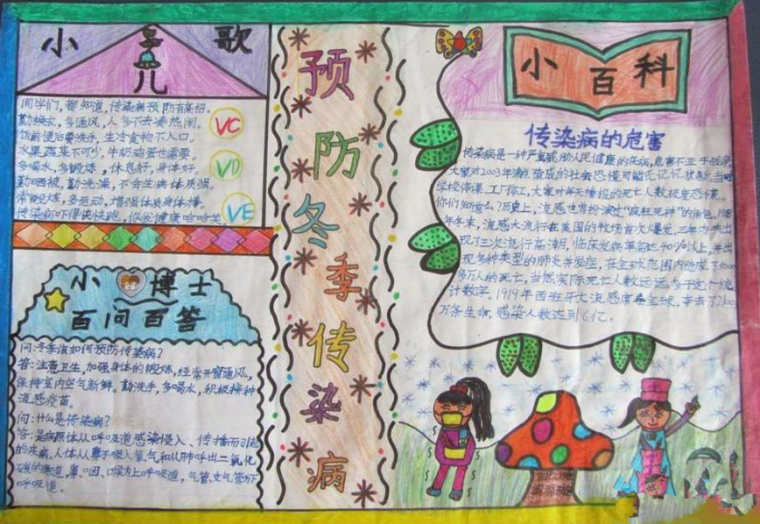 小儿歌
同学们，都知道，传染病预防有高招。
勤喝水，多通风，人多不去凑热闹。
饭前便后要洗手，生冷食物不入口。
水果蔬菜不可少，牛奶鸡蛋也需要。
多喝水，多锻炼，休息好，身体好。
勤晒被，勤洗澡，不会生病体质强。
常锻炼，多运动，增强体质身体棒。
传染病吓得快跑，你我健康哈哈笑
VC
VD
VE
小博士
百问百答
问：冬季该如何预防传染病？
答：注意卫生，加强身体的锻炼，经常开窗通风，
保持室内空气新鲜。勤洗手，多喝水，积极接种
流感疫苗。
问：什么是传染病？
答：是病原体从呼吸道感染侵入、传播而引起
的疾病。人体从鼻吸入氧气和从肺呼出二氧化
碳的渠道，鼻、口、喉为上呼吸道，气管、支气管为下
呼吸道。
预防冬季传染病
小百科
传染病的危害
传染病是一种严重威胁人民健康的疾病，危害不亚于
大家对2003年
学校停课，工厂停工，大家对每天播报的死亡人数极度恐慌。
你们知道么？历史上，流感也常扮演过“疯狂死神”的角色。
年冬末，流感大流行在美国的牧场首次爆发，三年内共出
现了三次流行高潮，临床发病率高达40%以上，并出
现多种类型的肺炎并发症，在全球范围内造成了
万人的死亡，当然实际死亡人数远远高于这个统
计数字。1919年西班牙大流感席卷全球，夺去了
万条生命，感染人数达到6亿。